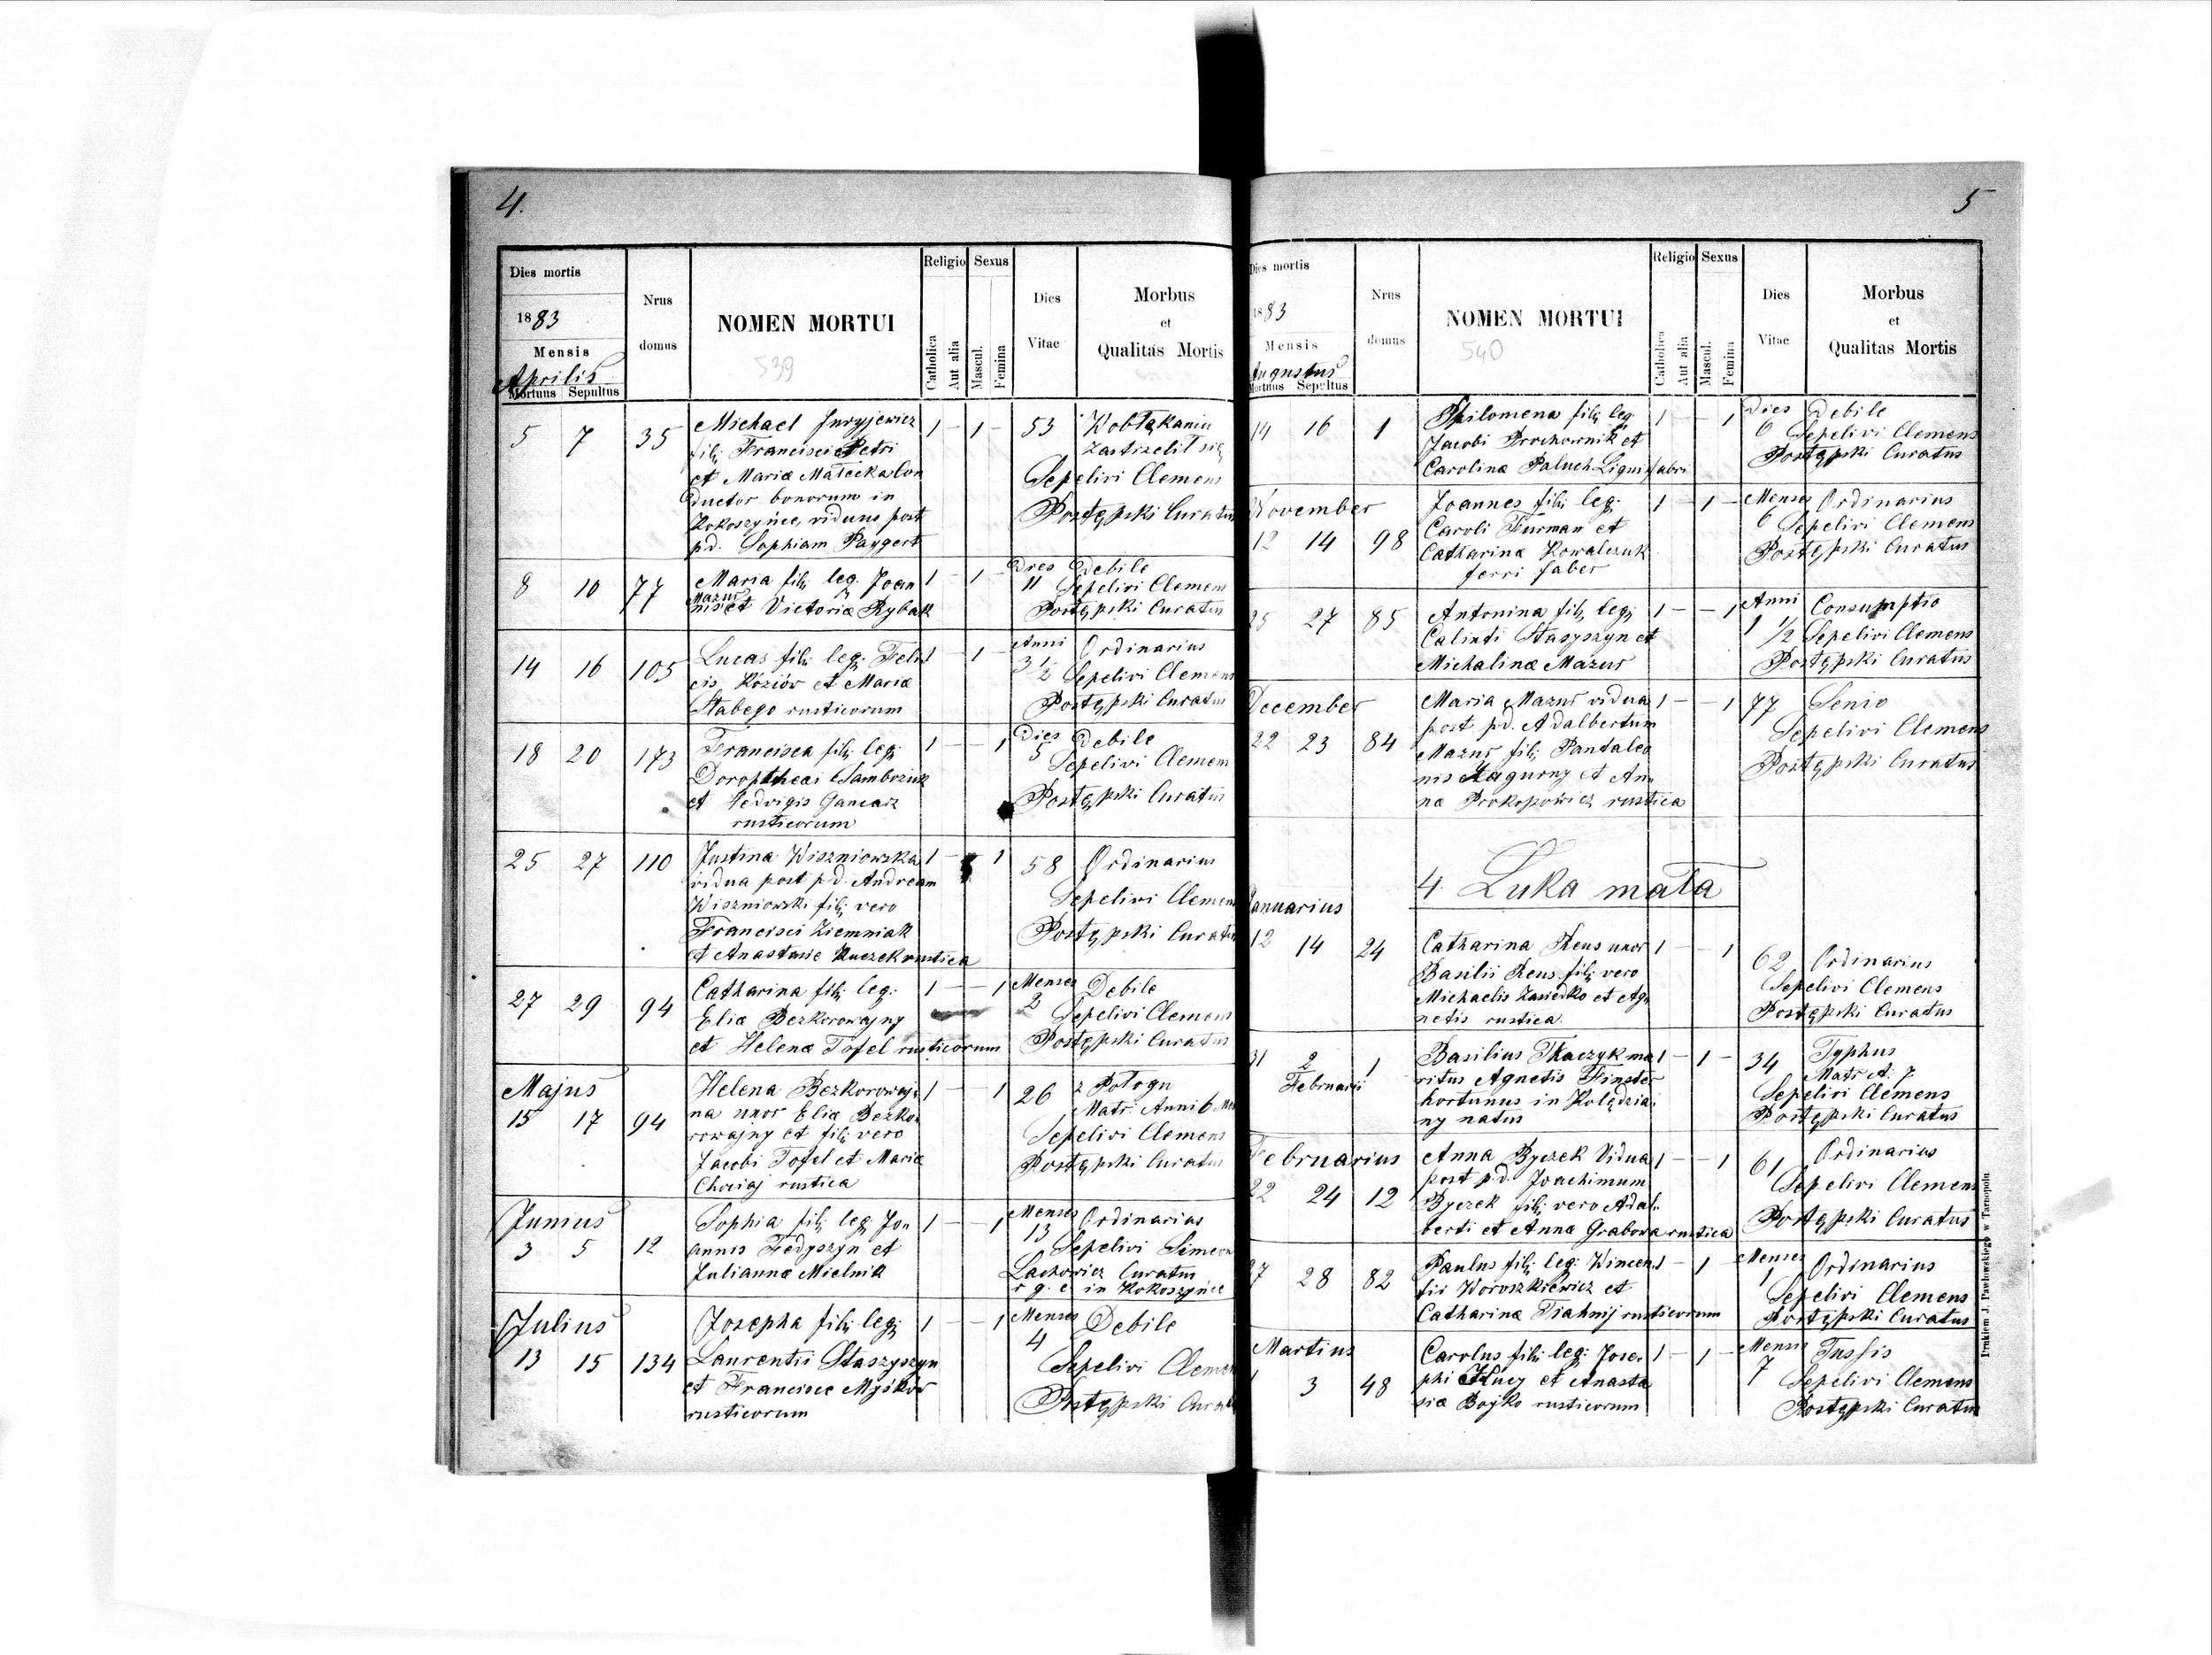 4.
Dies mortis
1883
Mensis
Aprilis
Mortuus Sepultus
Nrus domus
NOMEN MORTUI
539
Religio
Catholica
Aut alia
Sexus
Mascul.
Femina
Dies Vitae
Morbus et Qualitas Mortis
5 7 35 Michael Juryjewicz 1 – 1 – 53 W obłąkaniu
fili Francisci Petri Zastrzelił się
et Mariæ Małecka Con Sepelivi Clemens
ductor bonorum in Postępski Curatus
Kokoszyńce, viduus post
p.d. Sophiam Paygert
8 10 77 Maria fili leg. Joan 1 – 1 – Dies 11 Debile
Mazur Sepelivi Clemens
nis et Victoriæ Rybak Postępski Curatus
14 16 105 Lucas fili leg. Feli 1 – 1 – Anni 3 1/2 Ordinarius
cis Kóziór et Mariæ Sepelivi Clemens
Stabego rusticorum Postępski Curatus
18 20 173 Francisca fili leg. 1 – – 1 Dies 5 Debile
Doroptheai Samborzuk Sepelivi Clemens
et Hedvigis Gancarz Postępski Curatus
rusticorum
25 27 110 Justina Wiszniowska 1 – 1 58 Ordinarius
vidua post p.d. Andream Sepelivi Clemens
Wiszniowski fili vero Postępski Curatus
Francisci Ziemniak
et Anastasie Kuczek rustica
27 29 94 Catharina fili leg. 1 – – 1 Menses 2 Debile
Eliæ Bezkorowajny Sepelivi Clemens
et Helenæ Tofel rusticorum Postępski Curatus
Majus
15 17 94 Helena Bezkorowaj 1 – – 1 26 z Połogu
na uxor Eliæ Bezko Matr. Anni 6
rowajny et fili vero Sepelivi Clemens
Jacobi Tofel et Mariæ Postępski Curatus
Chociaj rustica
Junius
3 5 12 Sophia fili leg. Jo 1 – – 1 Menses 13 Ordinarius
annis Fedyszyn et Sepelivi Simeon
Juliannæ Mielnik Lachowicz Curatus
r. g. c. in Kokoszyńce
Julius
13 15 134 Josepha fili leg. 1 – – 1 Menses 4 Debile
Laurentii Staszyszyn Sepelivi Clemens
et Francisce Myśków Postępski Curatus
rusticorum
5
Dies mortis
1883
Mensis
Augustus
Mortuus Sepultus
Nrus domus
NOMEN MORTUI
540
Religio
Catholica
Aut alia
Sexus
Mascul.
Femina
Dies Vitae
Morbus et Qualitas Mortis
14 16 1 Philomena fili leg. 1 – – 1 Dies 6 Debile
Jacobi Prochownik et Sepelivi Clemens
Carolinæ Paluch Ligni fabri Postępski Curatus
November
12 14 98 Joannes fili leg. 1 – 1 – Menses 6 Ordinarius
Caroli Furman et Sepelivi Clemens
Catharinæ Kowalczuk Postępski Curatus
ferri faber
25 27 85 Antonina fili leg. 1 – – 1 Anni 1 1/2 Consumptio
Calixti Stasyszyn et Sepelivi Clemens
Michalinæ Mazur Postępski Curatus
December
22 23 84 Maria Mazur vidua 1 – – 1 77 Senio
post p.d. Adalbertum Sepelivi Clemens
Mazur fili Pantaleo Postępski Curatus
nis Zagurny et An
næ Prokopowicz rustica
4. Luka mała
Januarius
12 14 24 Catharina Reus uxor 1 – – 1 62 Ordinarius
Basilii Reus fili vero Sepelivi Clemens
Michaelis Zasiedko et Ag Postępski Curatus
netis rustica
31 2 Februarii 1 Basilius Tkaczyk ma 1 – 1 – 34 Typhus
ritus Agnetis Finster Matr. A. 7
hortunus in Kolędzia Sepelivi Clemens
ny natus Postępski Curatus
Februarius
22 24 12 Anna Byczek Vidua 1 – – 1 61 Ordinarius
post p.d. Joachimum Sepelivi Clemens
Byczek fili vero Adal Postępski Curatus
berti et Annæ Grabowa rustica
27 28 82 Paulus fili leg. Wincen 1 – 1 – Menses 1 Ordinarius
tii Woroszkiewicz et Sepelivi Clemens
Catharinæ Diahnij rusticorum Postępski Curatus
Martius
1 3 48 Carolus fili leg. Jose 1 – 1 – Menses 7 Tussis
phi Hucy et Anasta Sepelivi Clemens
siæ Bojko rusticorum Postępski Curatus
Drukiem J. Pawłowskiego w Tarnopolu